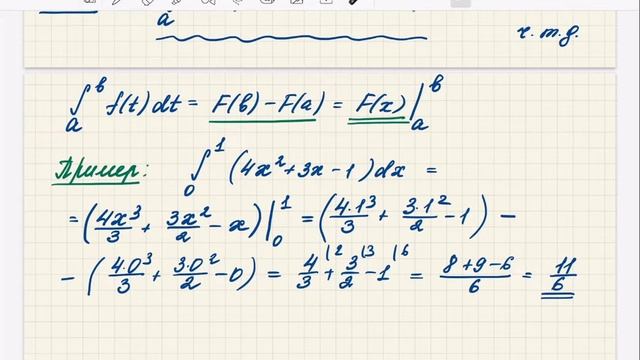 a
ч.т.д.
∫_a^b f(t)dt = F(b) - F(a) = F(x)|_a^b
Пример: ∫_0^1 (4x²+3x-1)dx =
= (4x³/3 + 3x²/2 - x)|_0^1 = (4·1³/3 + 3·1²/2 - 1) -
- (4·0³/3 + 3·0²/2 - 0) = 4/3 |2 + 3/2 |3 - 1 |6 = 8+9-6/6 = 11/6